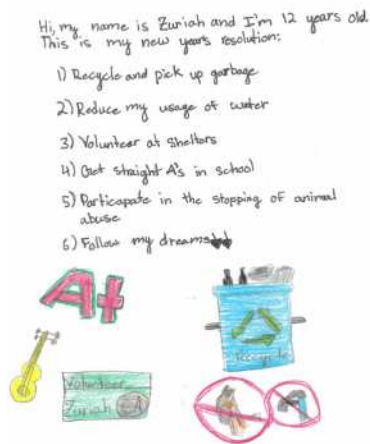 Hi, my name is Zuriah and I'm 12 years old
This is my new years resolution:
1) Recycle and pick up garbage
2) Reduce my usage of water
3) Volunteer at Sheltors
4) Get straight A's in school
5) Particapate in the stopping of animal
abuse
6) Follow my dreams
A+
Recycle
Volunteer
Zuriah